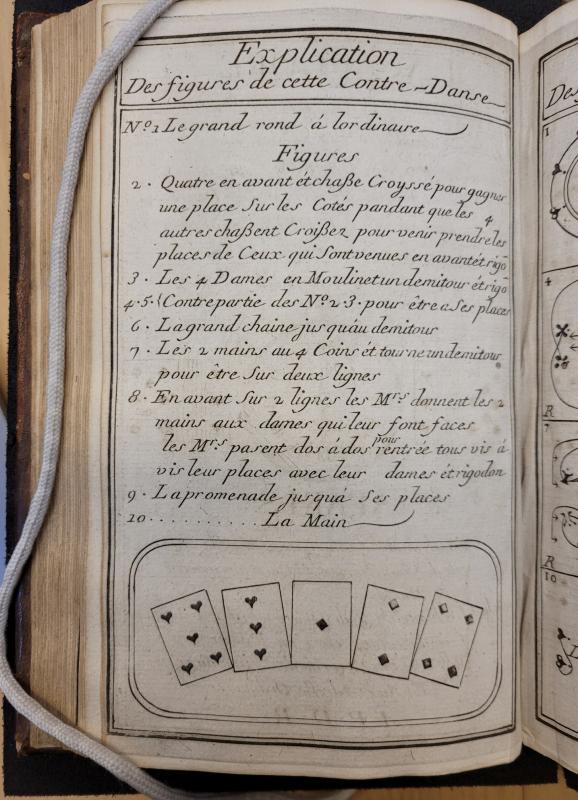 Explication
Des figures de cette Contre-Danse
N.º 1 Le grand rond á lordinaire
Figures
2. Quatre en avant ét chaße Croyssé pour gagner
une place Sur les Cotés pandant que les 4
autres chaßent Croißez pour venir prendre les
places de Ceux qui Sont venues en avant ét rigō
3. Les 4 Dames en Moulinet un demitour ét rigō
4.5. Contrepartie des N.º 2.3. pour être a Ses places
6. La grand chaine jus quáu demitour
7. Les 2 mains au 4 Coins ét tourne un demitour
pour être Sur deux lignes
8. En avant Sur 2 lignes les M.rs donnent les 2
mains aux dames qui leur font faces
les M.rs pasent dos á dos pour rentrée tous vis á
vis leur places avec leur dames ét rigodon
9. La promenade jusquá Ses places
10........... La Main
Des
1
4
R
7
R
10